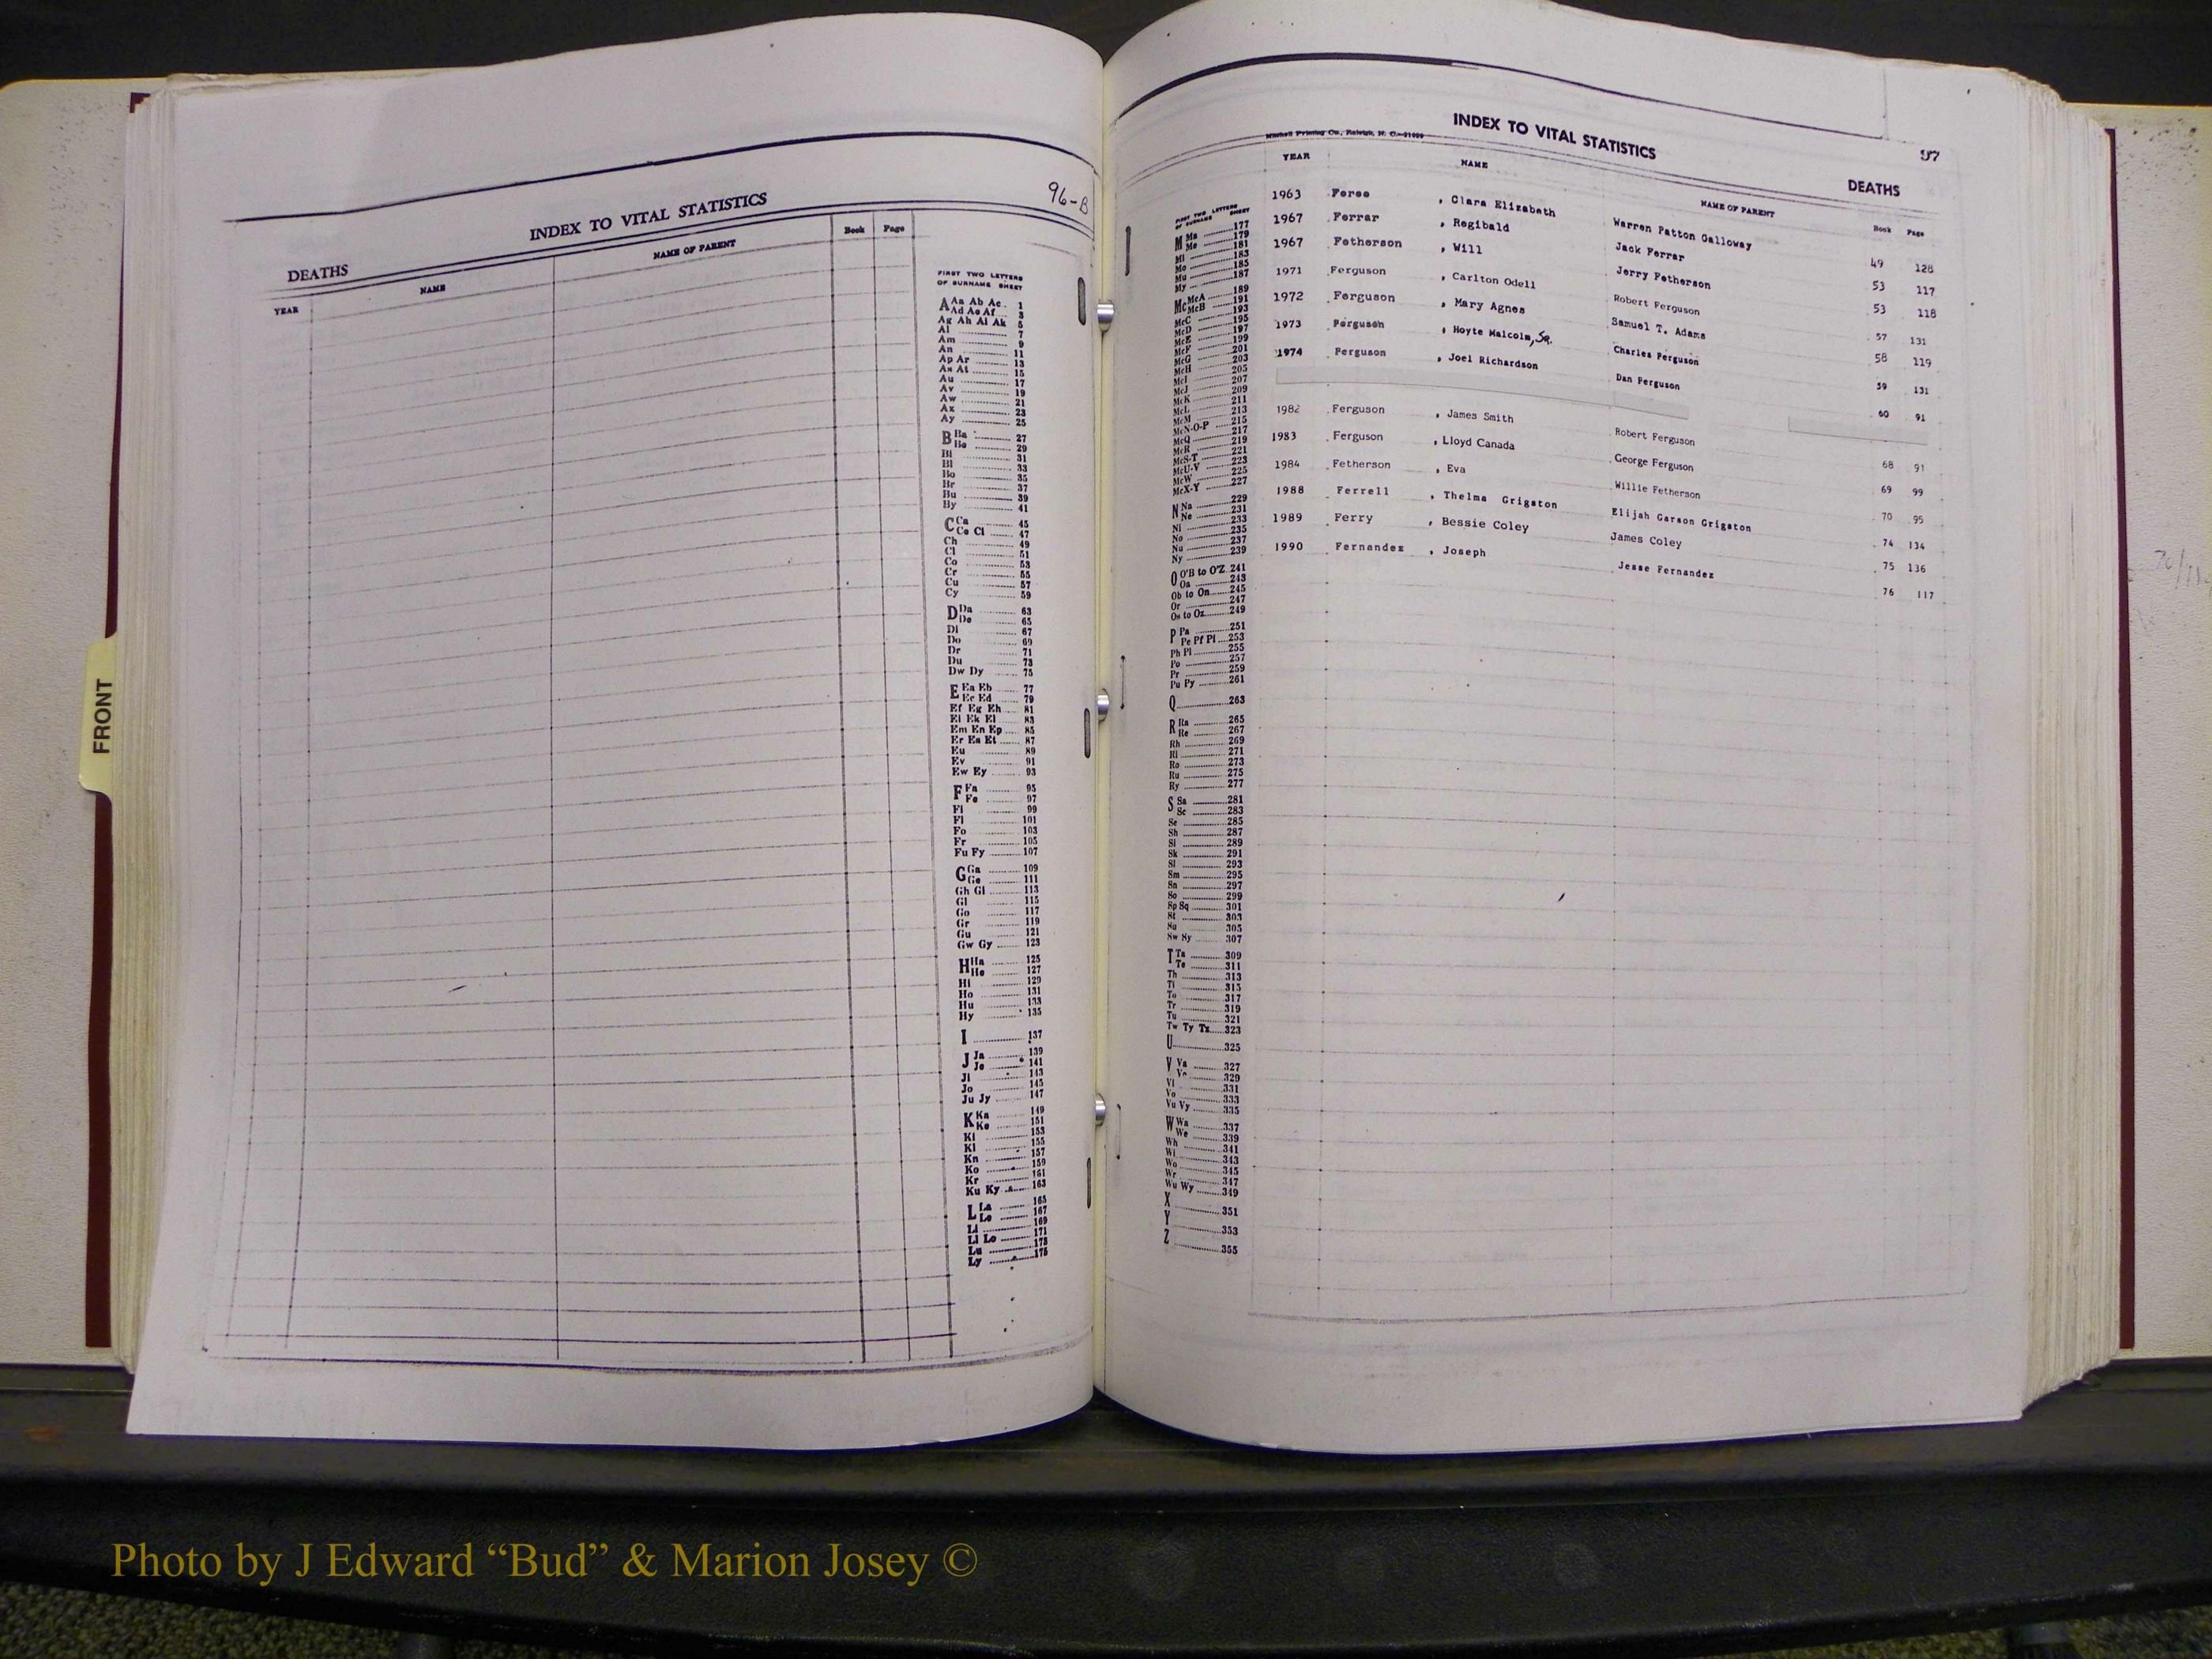 96-B
INDEX TO VITAL STATISTICS
DEATHS
YEAR NAME NAME OF PARENT Book Page
FIRST TWO LETTERS
OF SURNAME SHEET
A Aa Ab Ac 1
Ad Ae Af 3
Ag Ah Ai Ak 5
Al 7
Am 9
An 11
Ap Ar 13
As At 15
Au 17
Av 19
Aw 21
Ax 23
Ay 25
B Ba 27
Be 29
Bi 31
Bl 33
Bo 35
Br 37
Bu 39
By 41
C Ca 45
Ce Ci 47
Ch 49
Cl 51
Co 53
Cr 55
Cu 57
Cy 59
D Da 63
De 65
Di 67
Do 69
Dr 71
Du 73
Dw Dy 75
E Ea Eb 77
Ec Ed 79
Ef Eg Eh 81
Ei Ek El 83
Em En Ep 85
Er Es Et 87
Eu 89
Ev 91
Ew Ey 93
F Fa 95
Fe 97
Fi 99
Fl 101
Fo 103
Fr 105
Fu Fy 107
G Ga 109
Ge 111
Gh Gi 113
Gl 115
Go 117
Gr 119
Gu 121
Gw Gy 123
H Ha 125
He 127
Hi 129
Ho 131
Hu 133
Hy 135
I 137
J Ja 139
Je 141
Ji 143
Jo 145
Ju Jy 147
K Ka 149
Ke 151
Ki 153
Kl 155
Kn 157
Ko 159
Kr 161
Ku Ky 163
L La 165
Le 167
Li 169
Ll Lo 171
Lu 173
Ly 175
FRONT
Mitchell Printing Co., Raleigh, N. C.
INDEX TO VITAL STATISTICS
97
DEATHS
YEAR NAME NAME OF PARENT Book Page
1963 Feree , Clara Elizabeth Warren Patton Galloway 49 128
1967 Ferrar , Regibald Jack Ferrar 53 117
1967 Fetherson , Will Jerry Fetherson 53 118
1971 Ferguson , Carlton Odell Robert Ferguson 57 131
1972 Ferguson , Mary Agnes Samuel T. Adams 58 119
1973 Ferguson , Hoyte Malcolm, Sr. Charles Ferguson 59 131
1974 Ferguson , Joel Richardson Dan Ferguson 60 91
1982 Ferguson , James Smith Robert Ferguson 68 91
1983 Ferguson , Lloyd Canada George Ferguson 69 99
1984 Fetherson , Eva Willie Fetherson 70 95
1988 Ferrell , Thelma Grigston Elijah Garson Grigston 74 134
1989 Ferry , Bessie Coley James Coley 75 136
1990 Fernandez , Joseph Jesse Fernandez 76 117
FIRST TWO LETTERS
OF SURNAME SHEET
M Ma 177
Me 179
Mi 181
Mo 183
Mu 185
My 187
Mc McA 189
McB 191
McC 193
McD 195
McE 197
McF 199
McG 201
McH 203
McI 205
McJ 207
McK 209
McL 211
McM 213
McN-O-P 215
McQ 217
McR 219
McS-T 221
McU-V 223
McW 225
McX-Y 227
N Na 229
Ne 231
Ni 233
No 235
Nu 237
Ny 239
O O'B to O'Z 241
Oa 243
Ob to On 245
Or 247
Os to Oz 249
P Pa 251
Pe Pf Pi 253
Ph Pl 255
Po 257
Pr 259
Pu Py 261
Q 263
R Ra 265
Re 267
Rh 269
Ri 271
Ro 273
Ru 275
Ry 277
S Sa 281
Sc 283
Se 285
Sh 287
Si 289
Sk 291
Sl 293
Sm 295
Sn 297
So 299
Sp Sq 301
St 303
Su 305
Sw Sy 307
T Ta 309
Te 311
Th 313
Ti 315
To 317
Tr 319
Tu 321
Tw Ty Tz 323
U 325
V Va 327
Ve 329
Vi 331
Vo 333
Vu Vy 335
W Wa 337
We 339
Wh 341
Wi 343
Wo 345
Wr 347
Wu Wy 349
X 351
Y 353
Z 355
Photo by J Edward “Bud” & Marion Josey ©